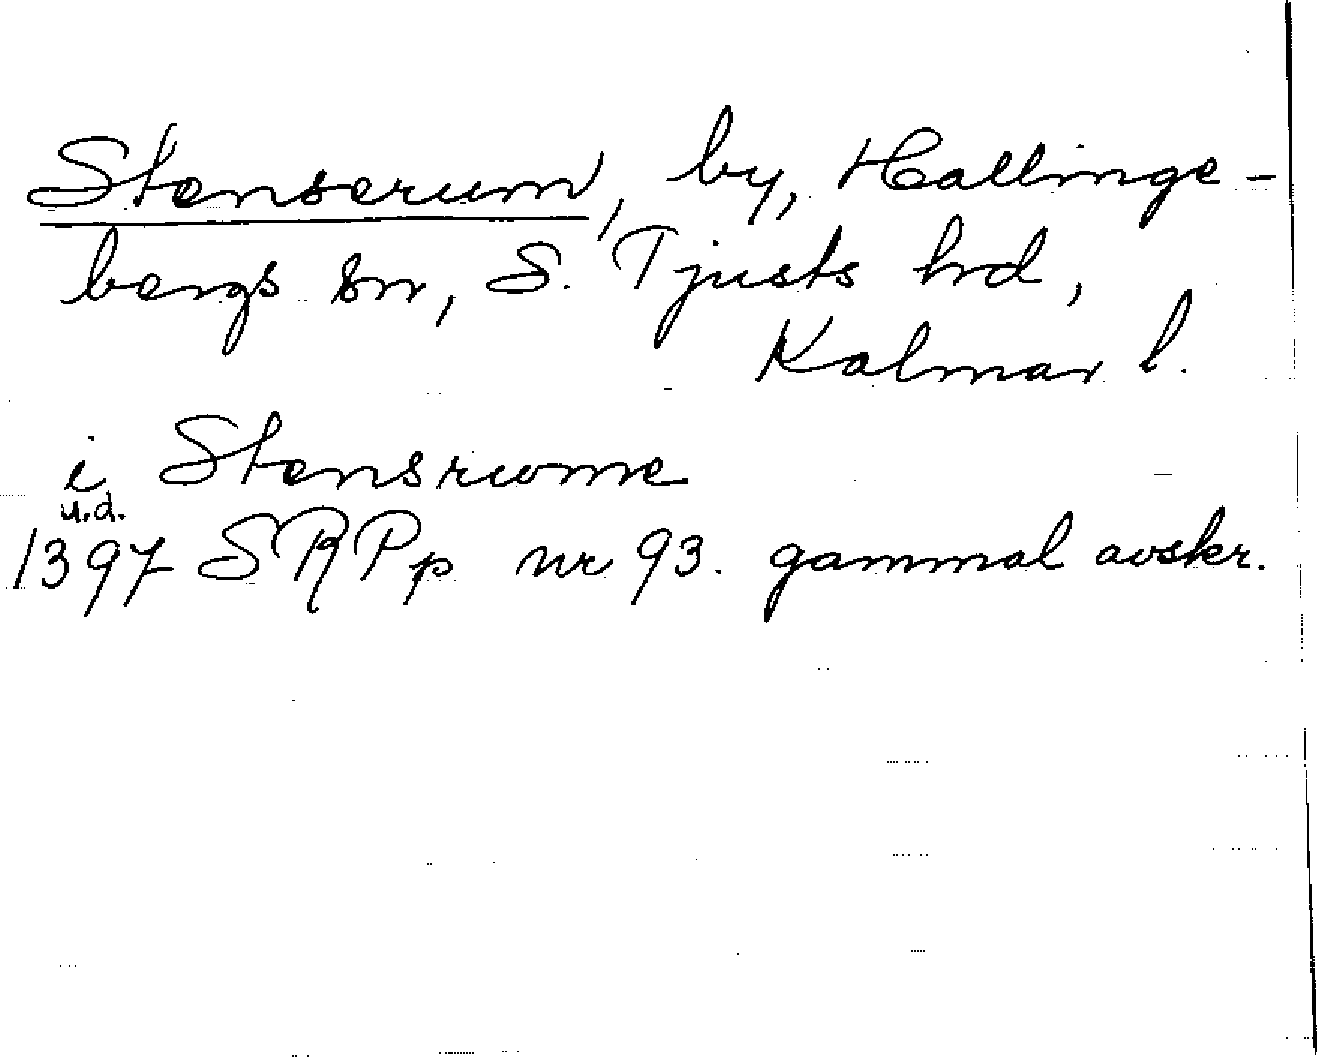 Stenserum, by, Hallinge-
bergs sn, S. Tjusts hrd,
Kalmar l.
i Stensrwme
u.d.
1397 SRPp nr 93. gammal avskr.